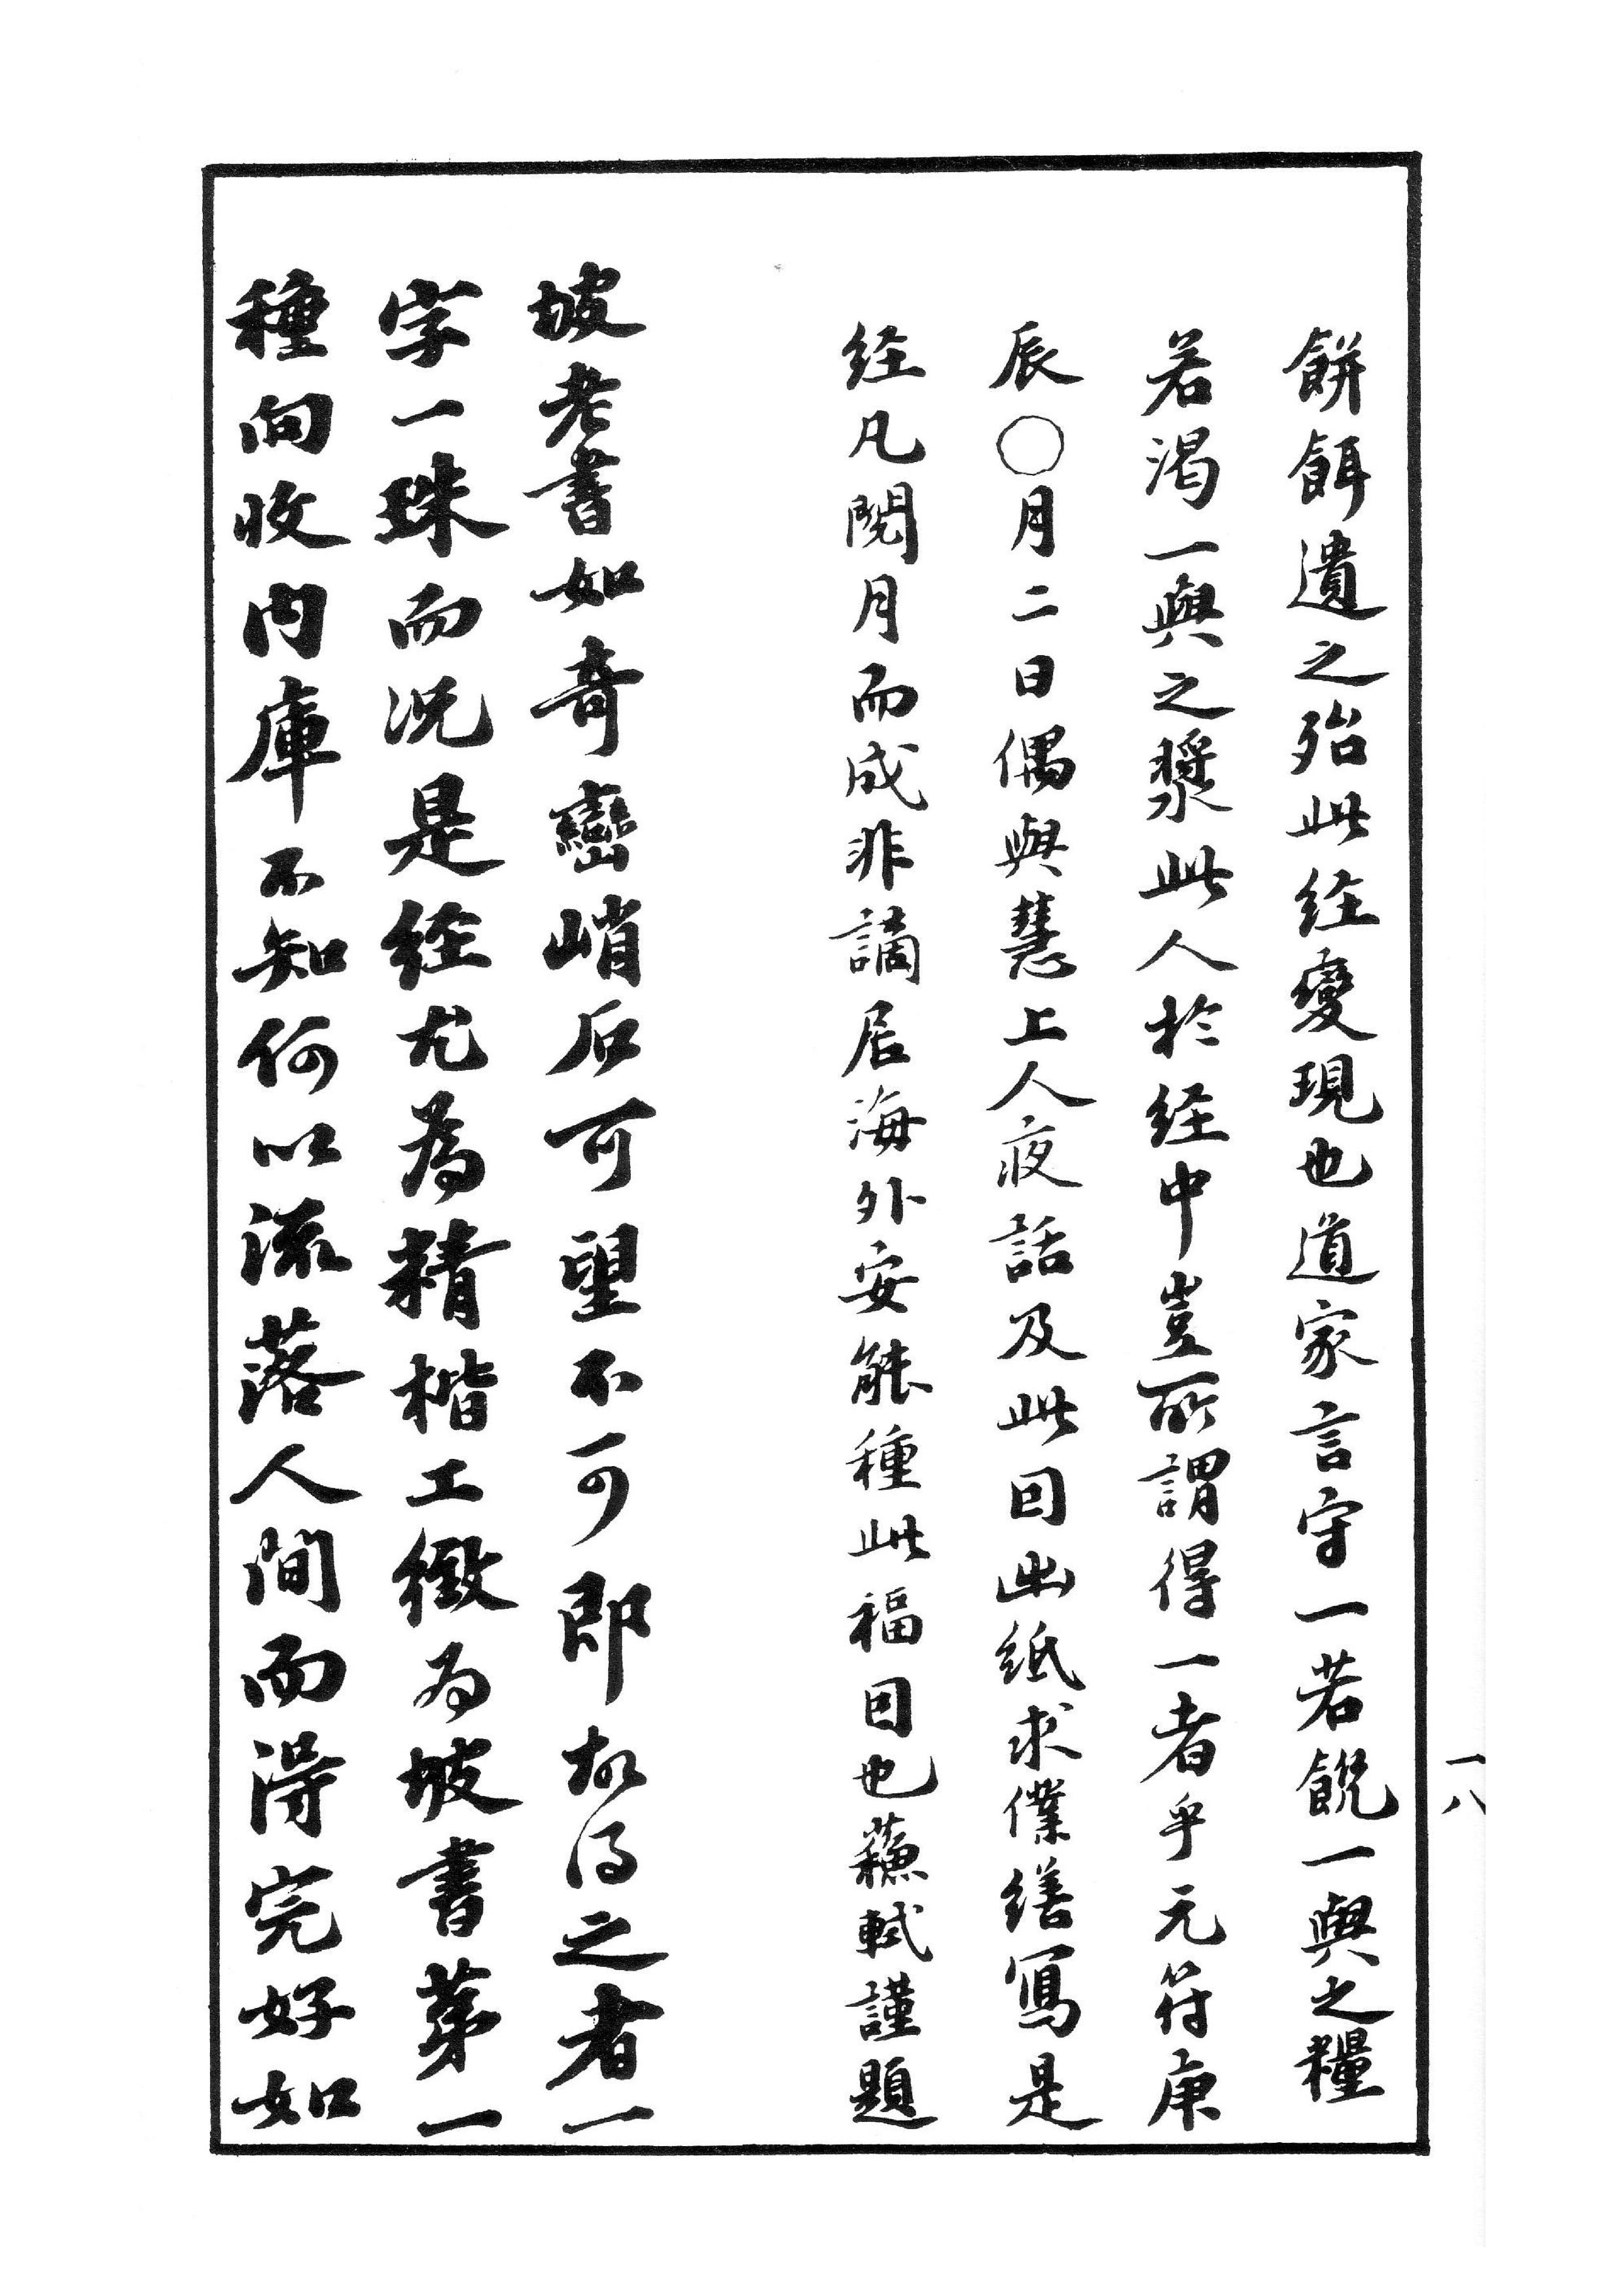 餅餌遺之殆此経變現也道家言守一若飢一與之糧
若渴一與之漿此人於経中豈所謂得一者乎元符庚
辰〇月二日偶與慧上人夜話及此因出紙求僕繕寫是
経凡閱月而成非謫居海外安能種此福因也蘓軾謹題
坡老書如奇巒峭石可望不可即故得之者一
字一珠而况是経尤為精楷工緻為坡書苐一
種向收内庫不知何以流落人間而得完好如
一八